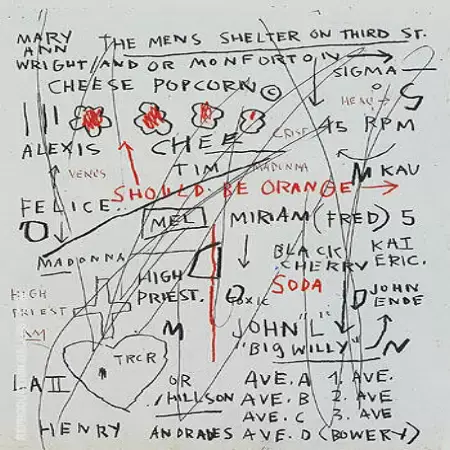 MARY ANN
THE MENS SHELTER ON THIRD ST.
WRIGHT AND/OR MONFORTON
SIGMA
CHEESE POPCORN ©
S
45 RPM
ALEXIS
CHEE
TIM
MADONNA
VENUS
M KAU
SHOULD BE ORANGE
FELICE
MEL
MIRIAM (FRED) 5
MADONNA
BLACK CHERRY
KAI ERIC.
HIGH PRIEST.
SODA
HIGH PRIEST
JOHN ENDE
M
JOHN "L"
"BIG WILLY"
N
TRCR
LA II
OR
HILLSON
AVE. A 1. AVE.
AVE. B 2. AVE.
AVE. C 3. AVE
HENRY
ANDRADES
AVE. D (BOWERY)